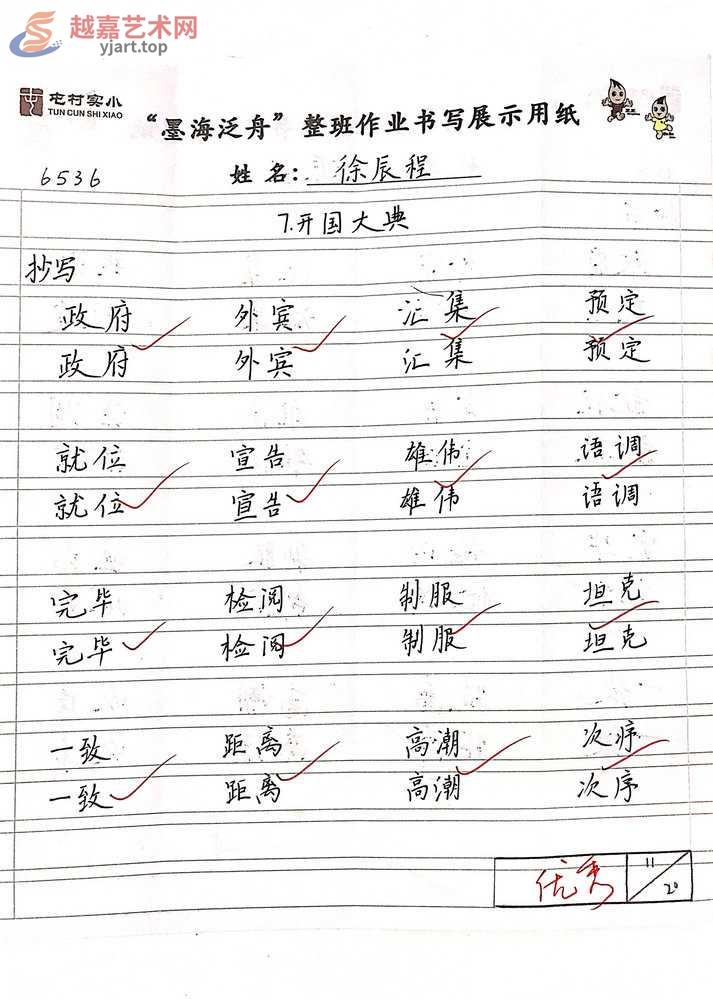 越嘉艺术网
yjart.top
屯村实小
TUN CUN SHI XIAO
“墨海泛舟”整班作业书写展示用纸
6536 姓名：徐辰程
7.开国大典
抄写
政府 外宾 汇集 预定
政府 外宾 汇集 预定
就位 宣告 雄伟 语调
就位 宣告 雄伟 语调
完毕 检阅 制服 坦克
完毕 检阅 制服 坦克
一致 距离 高潮 次序
一致 距离 高潮 次序
优秀 11/20